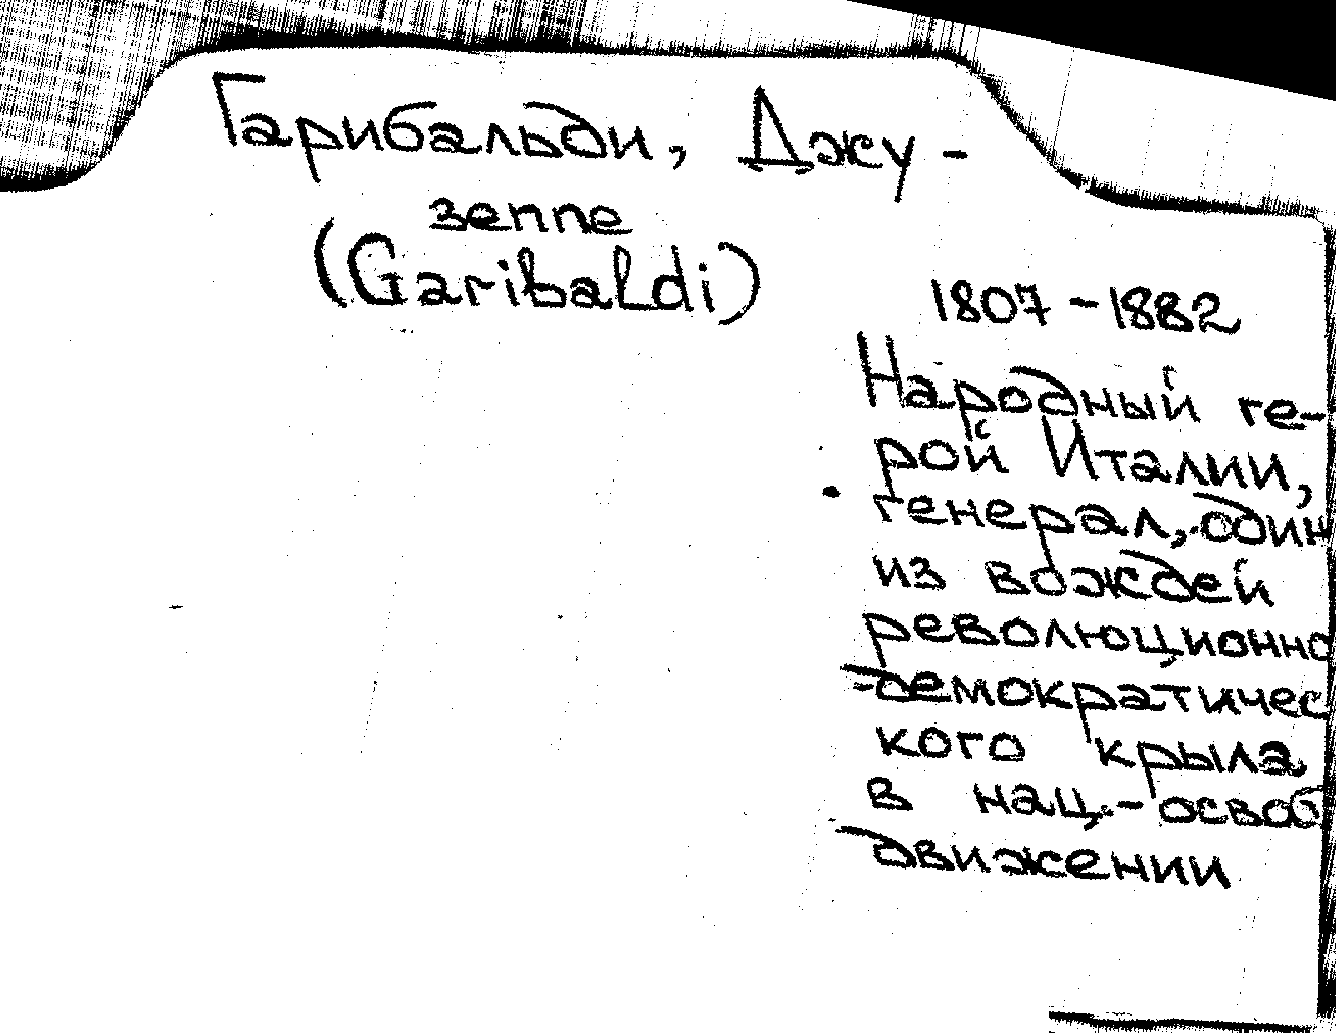 Гарибальди, Джу-
зеппе
(Garibaldi)
1807-1882
Народный ге-
рой Италии,
генерал, один
из вождей
революционно
-демократичес
кого крыла
в нац.-освоб
движении